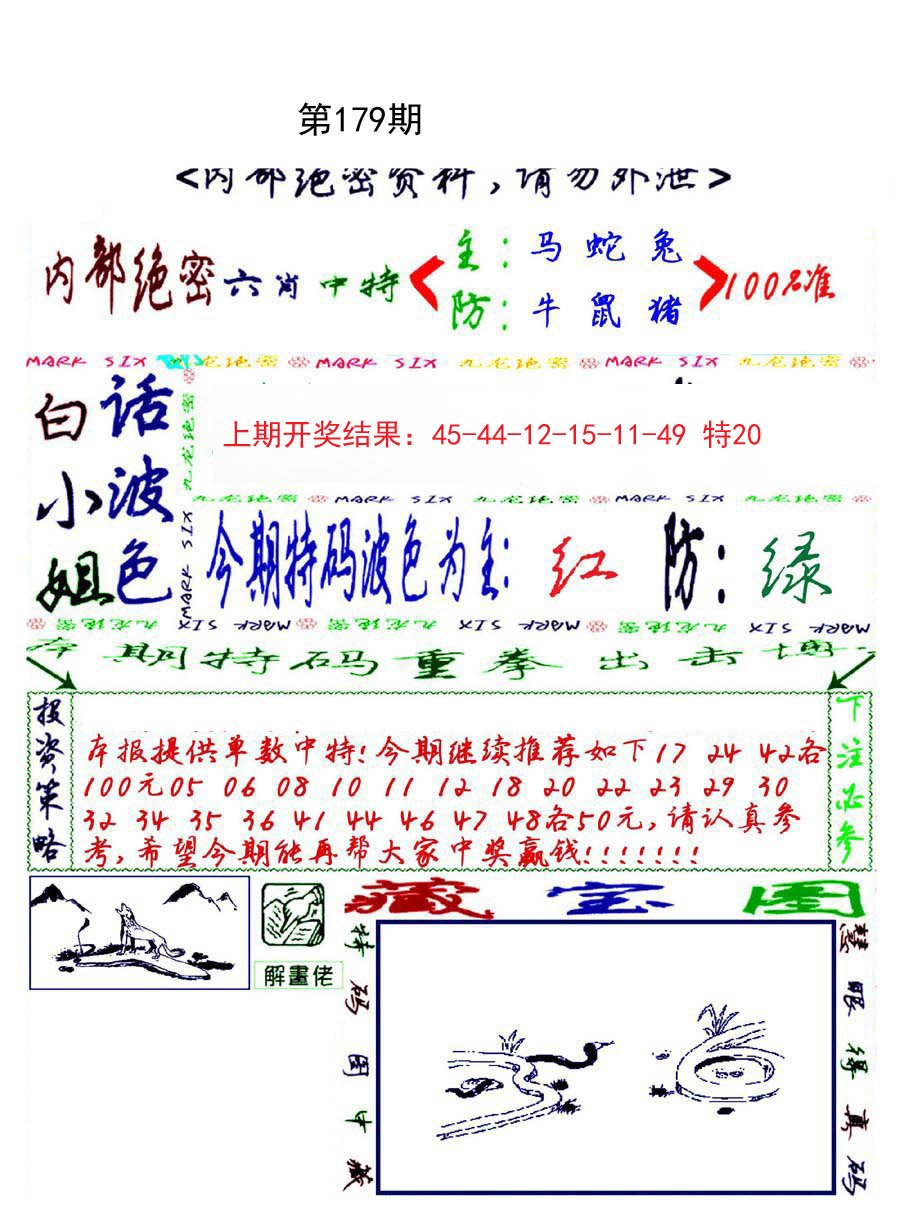 第179期
<内部绝密资料,请勿外泄>
内部绝密六肖中特
主:马 蛇 兔
防:牛 鼠 猪
100%准
MARK SIX 九龙绝密 MARK SIX 九龙绝密 MARK SIX 九龙绝密
白小姐
话波色
九龙绝密 MARK SIX
上期开奖结果: 45-44-12-15-11-49 特20
九龙绝密 MARK SIX 九龙绝密 MARK SIX 九龙绝密
今期特码波色为主: 红 防: 绿
九龙绝密 MARK SIX 九龙绝密 MARK SIX 九龙绝密 MARK SIX
本期特码重拳出击博
投资策略
本报提供单数中特!今期继续推荐如下17 24 42各
100元05 06 08 10 11 12 18 20 22 23 29 30
32 34 35 36 41 44 46 47 48各50元,请认真参
考,希望今期能再帮大家中奖赢钱!!!!!!!
下注必参
解畫佬
藏宝图
特码图中藏
慧眼得真码